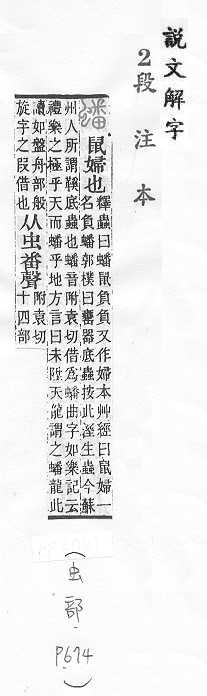 說文解字
2段注本
蟠 鼠婦也
釋蟲曰蟠鼠負負又作婦本艸經曰鼠婦一
名負蟠郭樸曰甕器底蟲按此溼生蟲今蘇
州人所謂鞵底蟲也蟠音附袁切借爲蟠曲字如樂記云
禮樂之極乎天而蟠乎地方言曰未陞天龍謂之蟠龍此
讀如盤舟部般
旋字之叚借也
从虫番聲
附袁切
十四部
(虫部 P674)